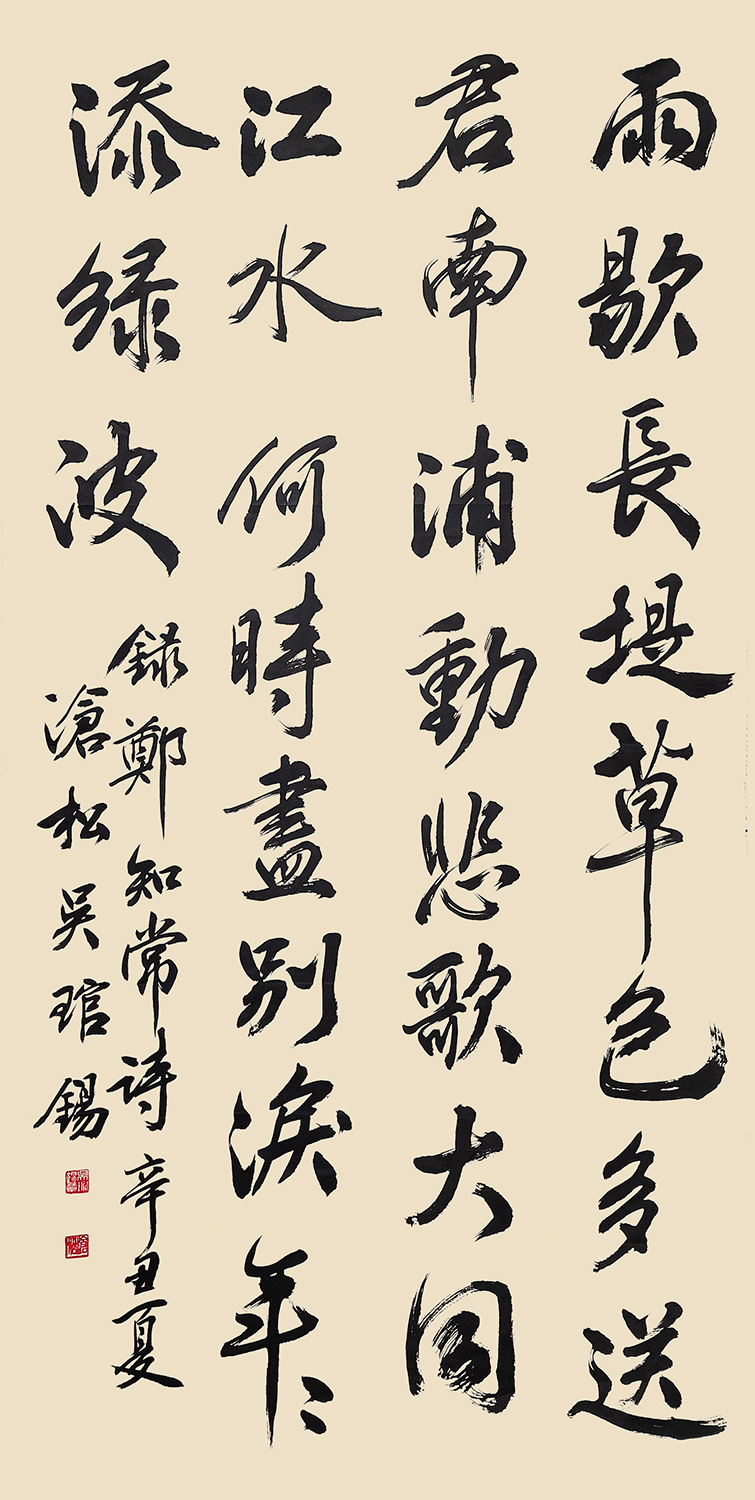 雨歇長堤草色多送
君南浦動悲歌大同
江水何時盡別淚年〻
添綠波
錄鄭知常詩 辛丑夏
滄松 吳琯錫